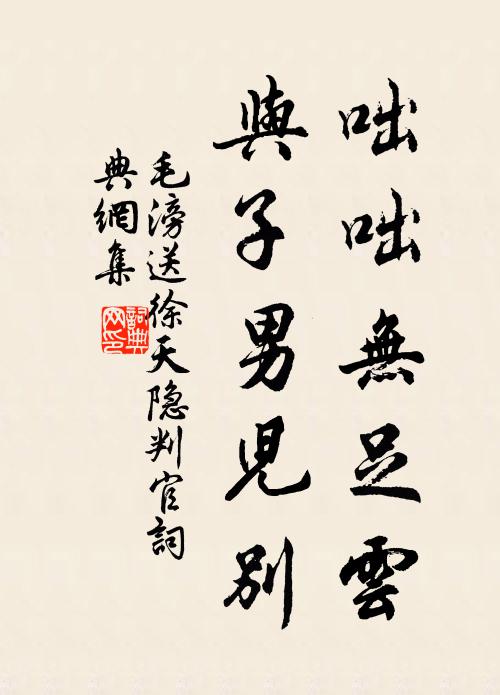 咄咄無足雲
與子男兒別
毛滂送徐天隐判官詞
典網集
詞典网印